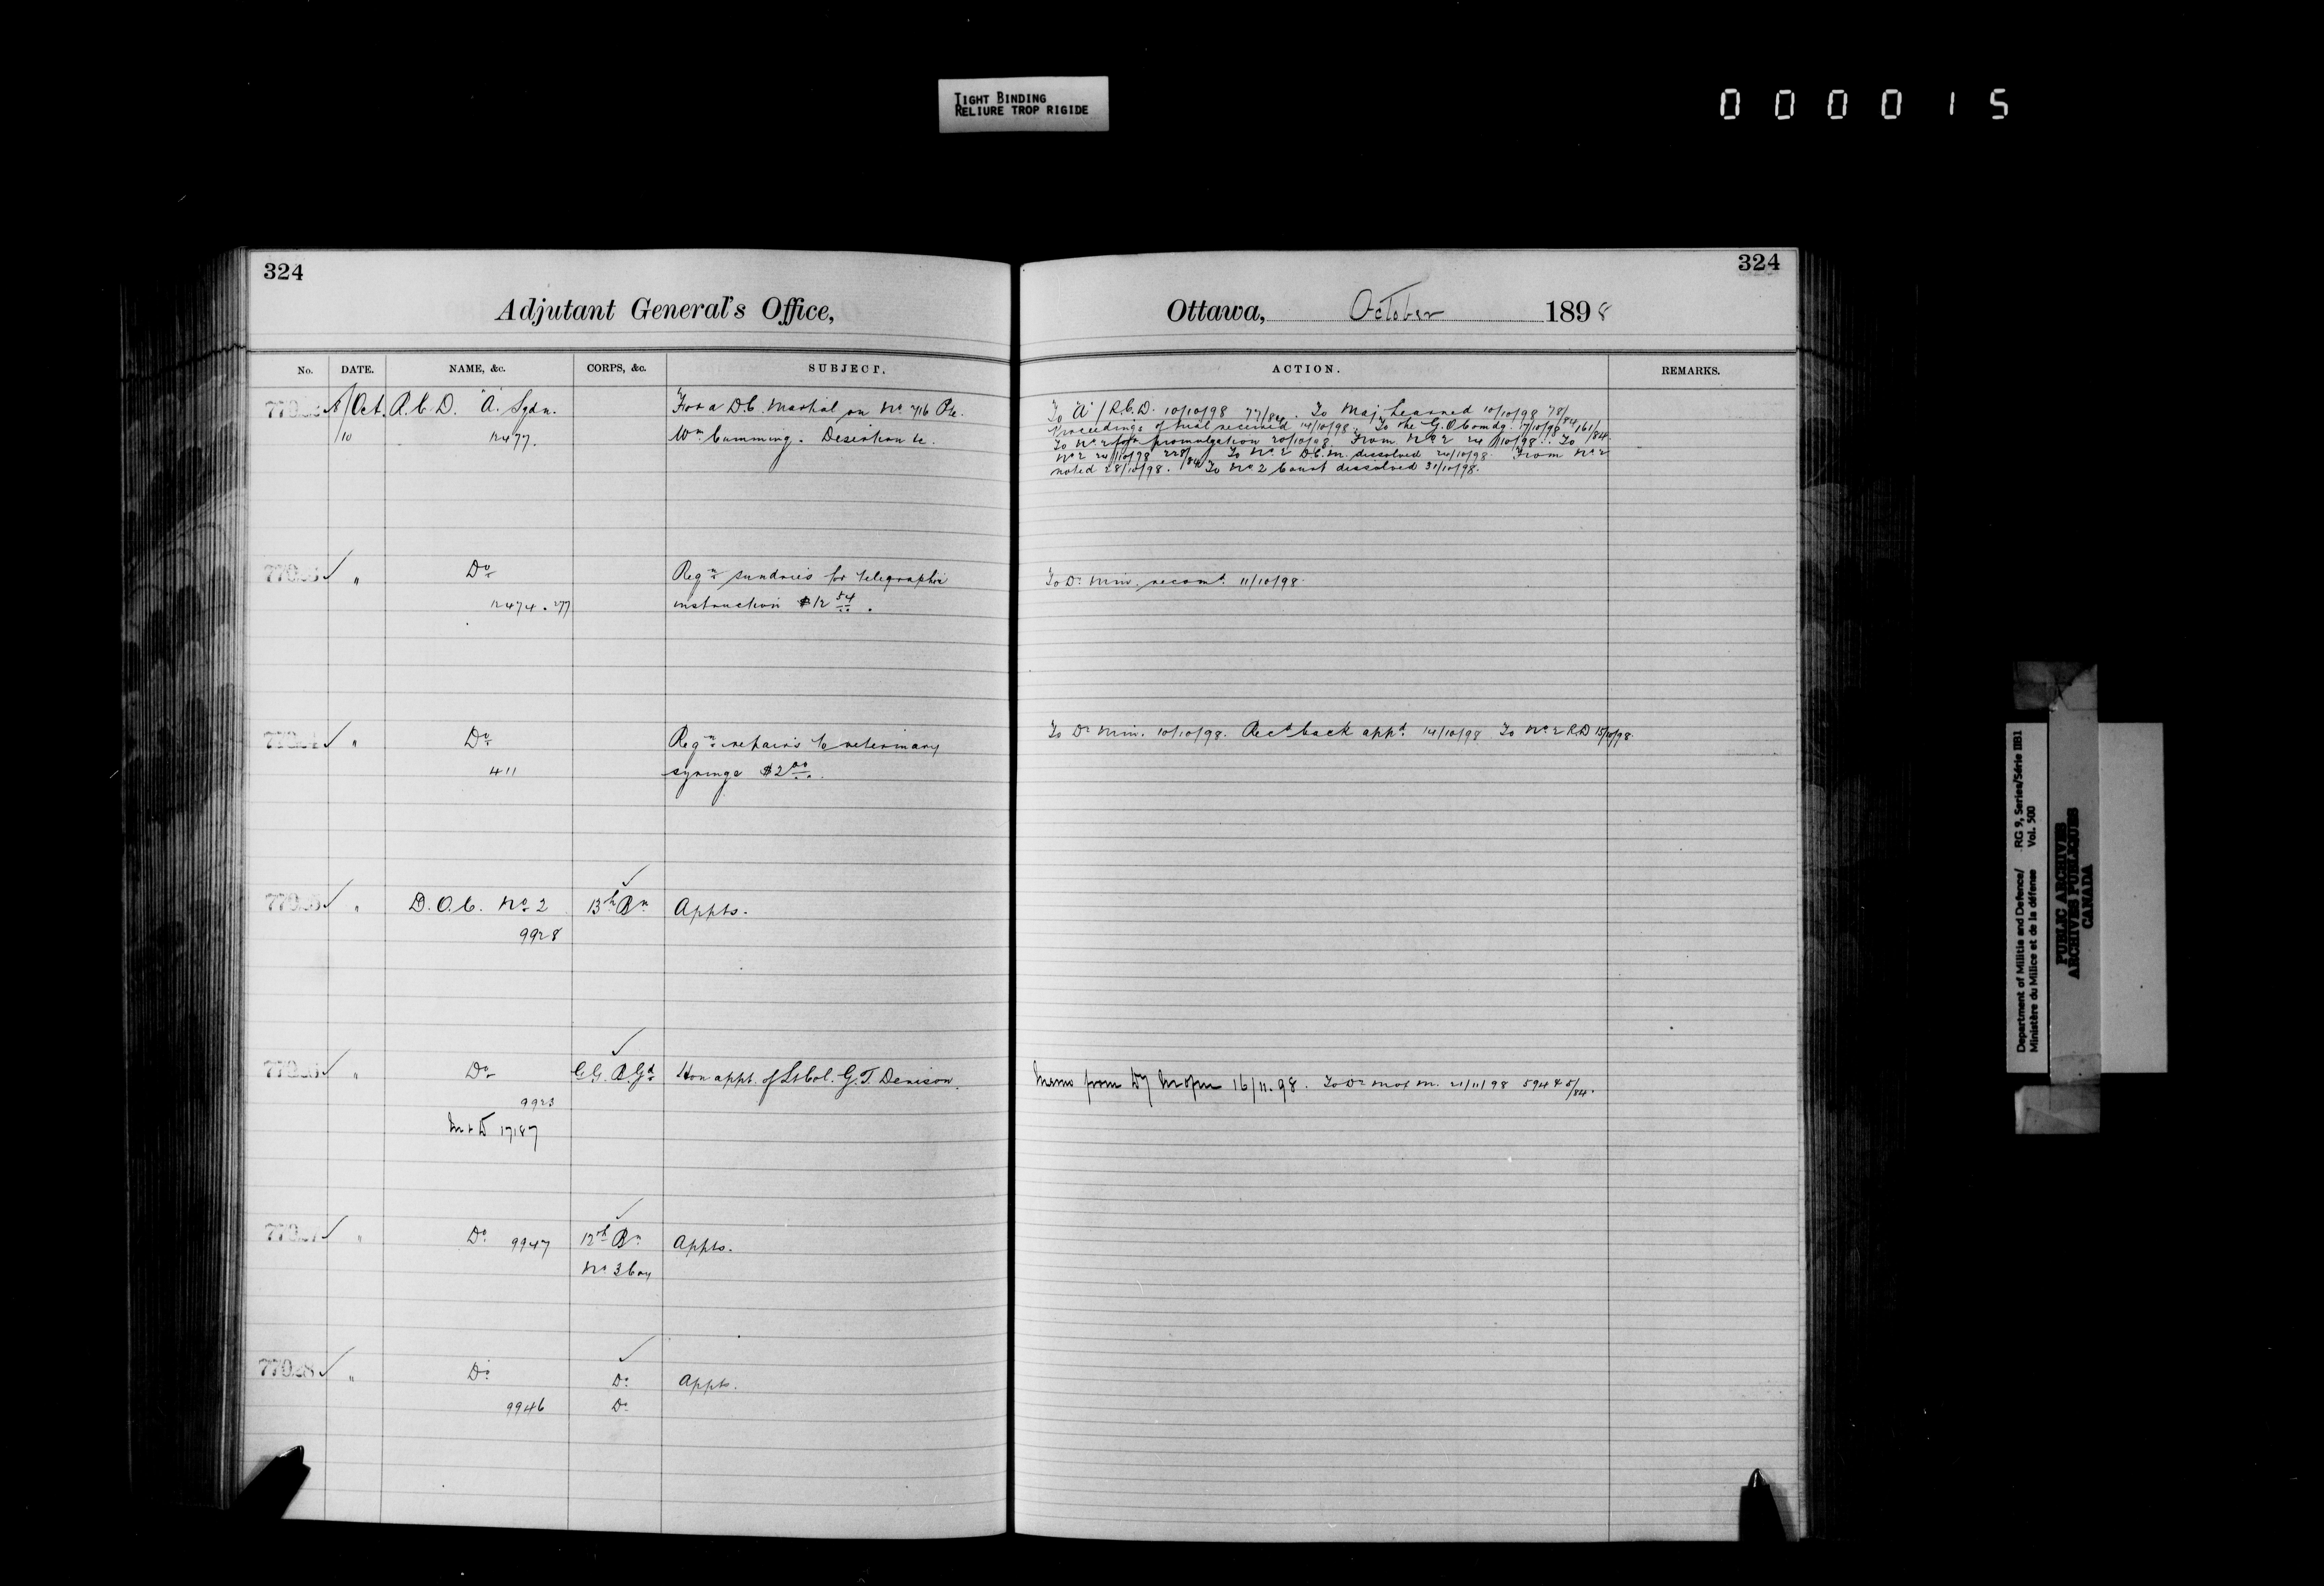 TIGHT BINDING
RELIURE TROP RIGIDE
0 0 0 0 1 5
324
Adjutant General's Office,
No. DATE. NAME, &c. CORPS, &c. SUBJECT.
8/Oct. R.C.D. "A". Sqdn. For a D.C. Martial on No. 716 Pte.
/10 12477. Wm Cumming. Desertion &c.
" Do Reqn sundries for telegraphic
12474. 277 instruction $12 54
" Do Reqn repairs to veterinary
411 syringe $2 00
" D.O.C. No 2 13th Bn Appts.
9928
" Do G.G.B.Gd Hon appt. of Lt Col. G.T. Denison.
9923
17187
" Do 9947 12th Bn Appts.
No 3 Coy
77028 " Do Do Appts.
9946 Do
324
Ottawa, October 1898
ACTION. REMARKS.
To "A" / R.C.D. 10/10/98 77/84. To Maj. Lessard 10/10/98 78/84
Proceedings of trial received 14/10/98. To the G.O.Comdg. 17/10/98 161/84
To No 2 for promulgation 20/10/98. From No 2 24/10/98. To
No 2 24/10/98 228/84 To No 2 D.C.M. dissolved 24/10/98. From No 2
noted 28/10/98. To No 2 Court dissolved 31/10/98.
To Dr Min. recomd. 11/10/98.
To Dr Min. 10/10/98. Recd back appd. 14/10/98 To No 2 R.D 15/10/98.
Memo from 16/11.98. To Dr M of M. 21/11/98 59448/84.
Department of Militia and Defence/
Ministère du Milice et de la défense
RG 9, Series/Série IIB1
Vol. 500
PUBLIC ARCHIVES
ARCHIVES PUBLIQUES
CANADA